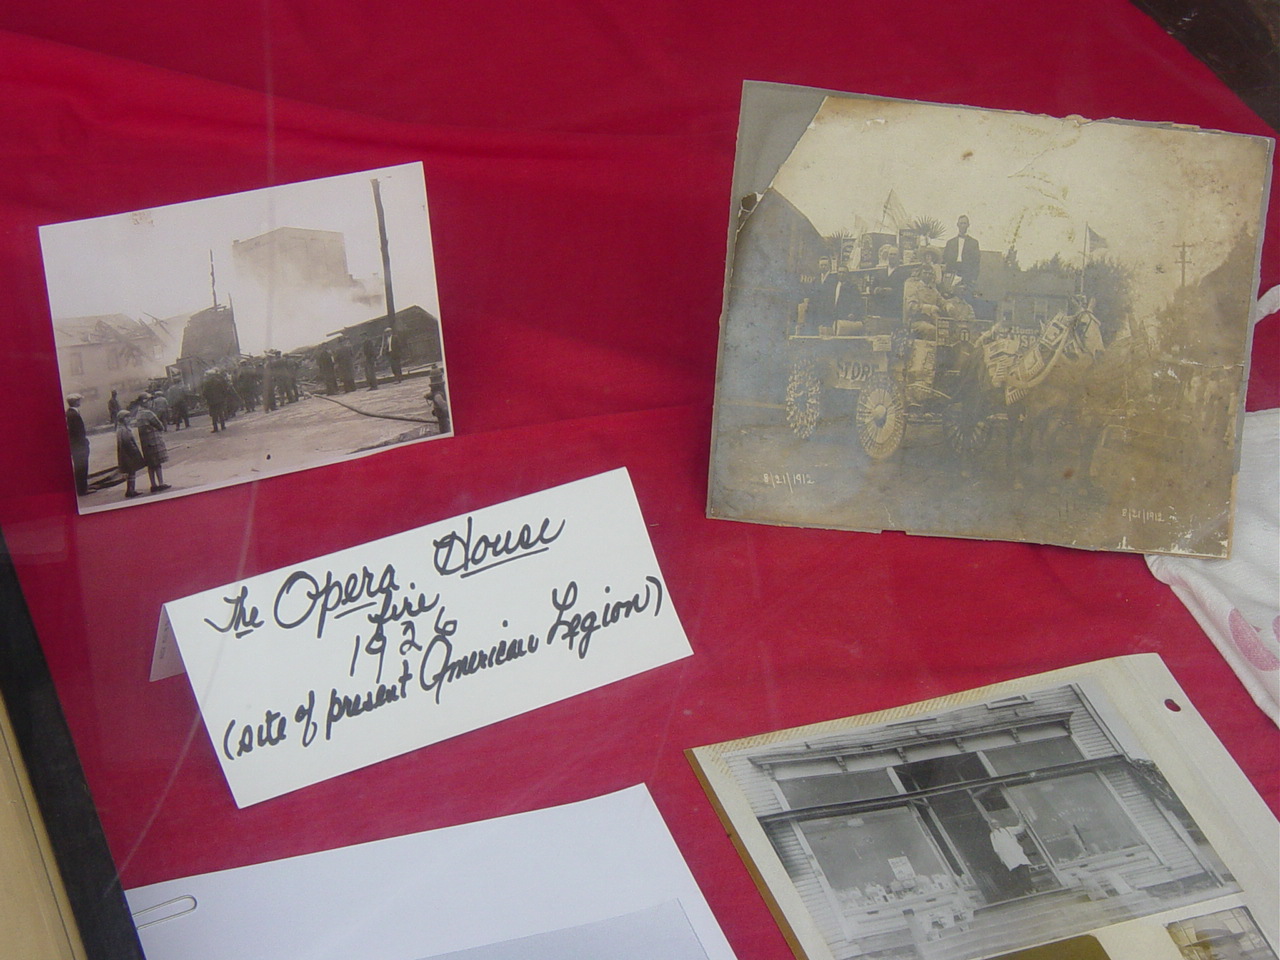 STORE
8/21/1912
8/21/1912
The Opera House
Fire
1926
(site of present American Legion)